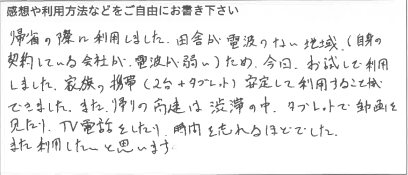 感想や利用方法などをご自由にお書き下さい
帰省の際に利用しました。田舎が電波のない地域、(自身の
契約している会社が、電波が弱い)ため、今回、お試しで利用
しました。家族の携帯(2台+タブレット)安定して利用することが
できました。また、帰りの高速は渋滞の中、タブレットで動画を
見たり、TV電話をしたり、時間を忘れるほどでした。
また利用したいと思います。